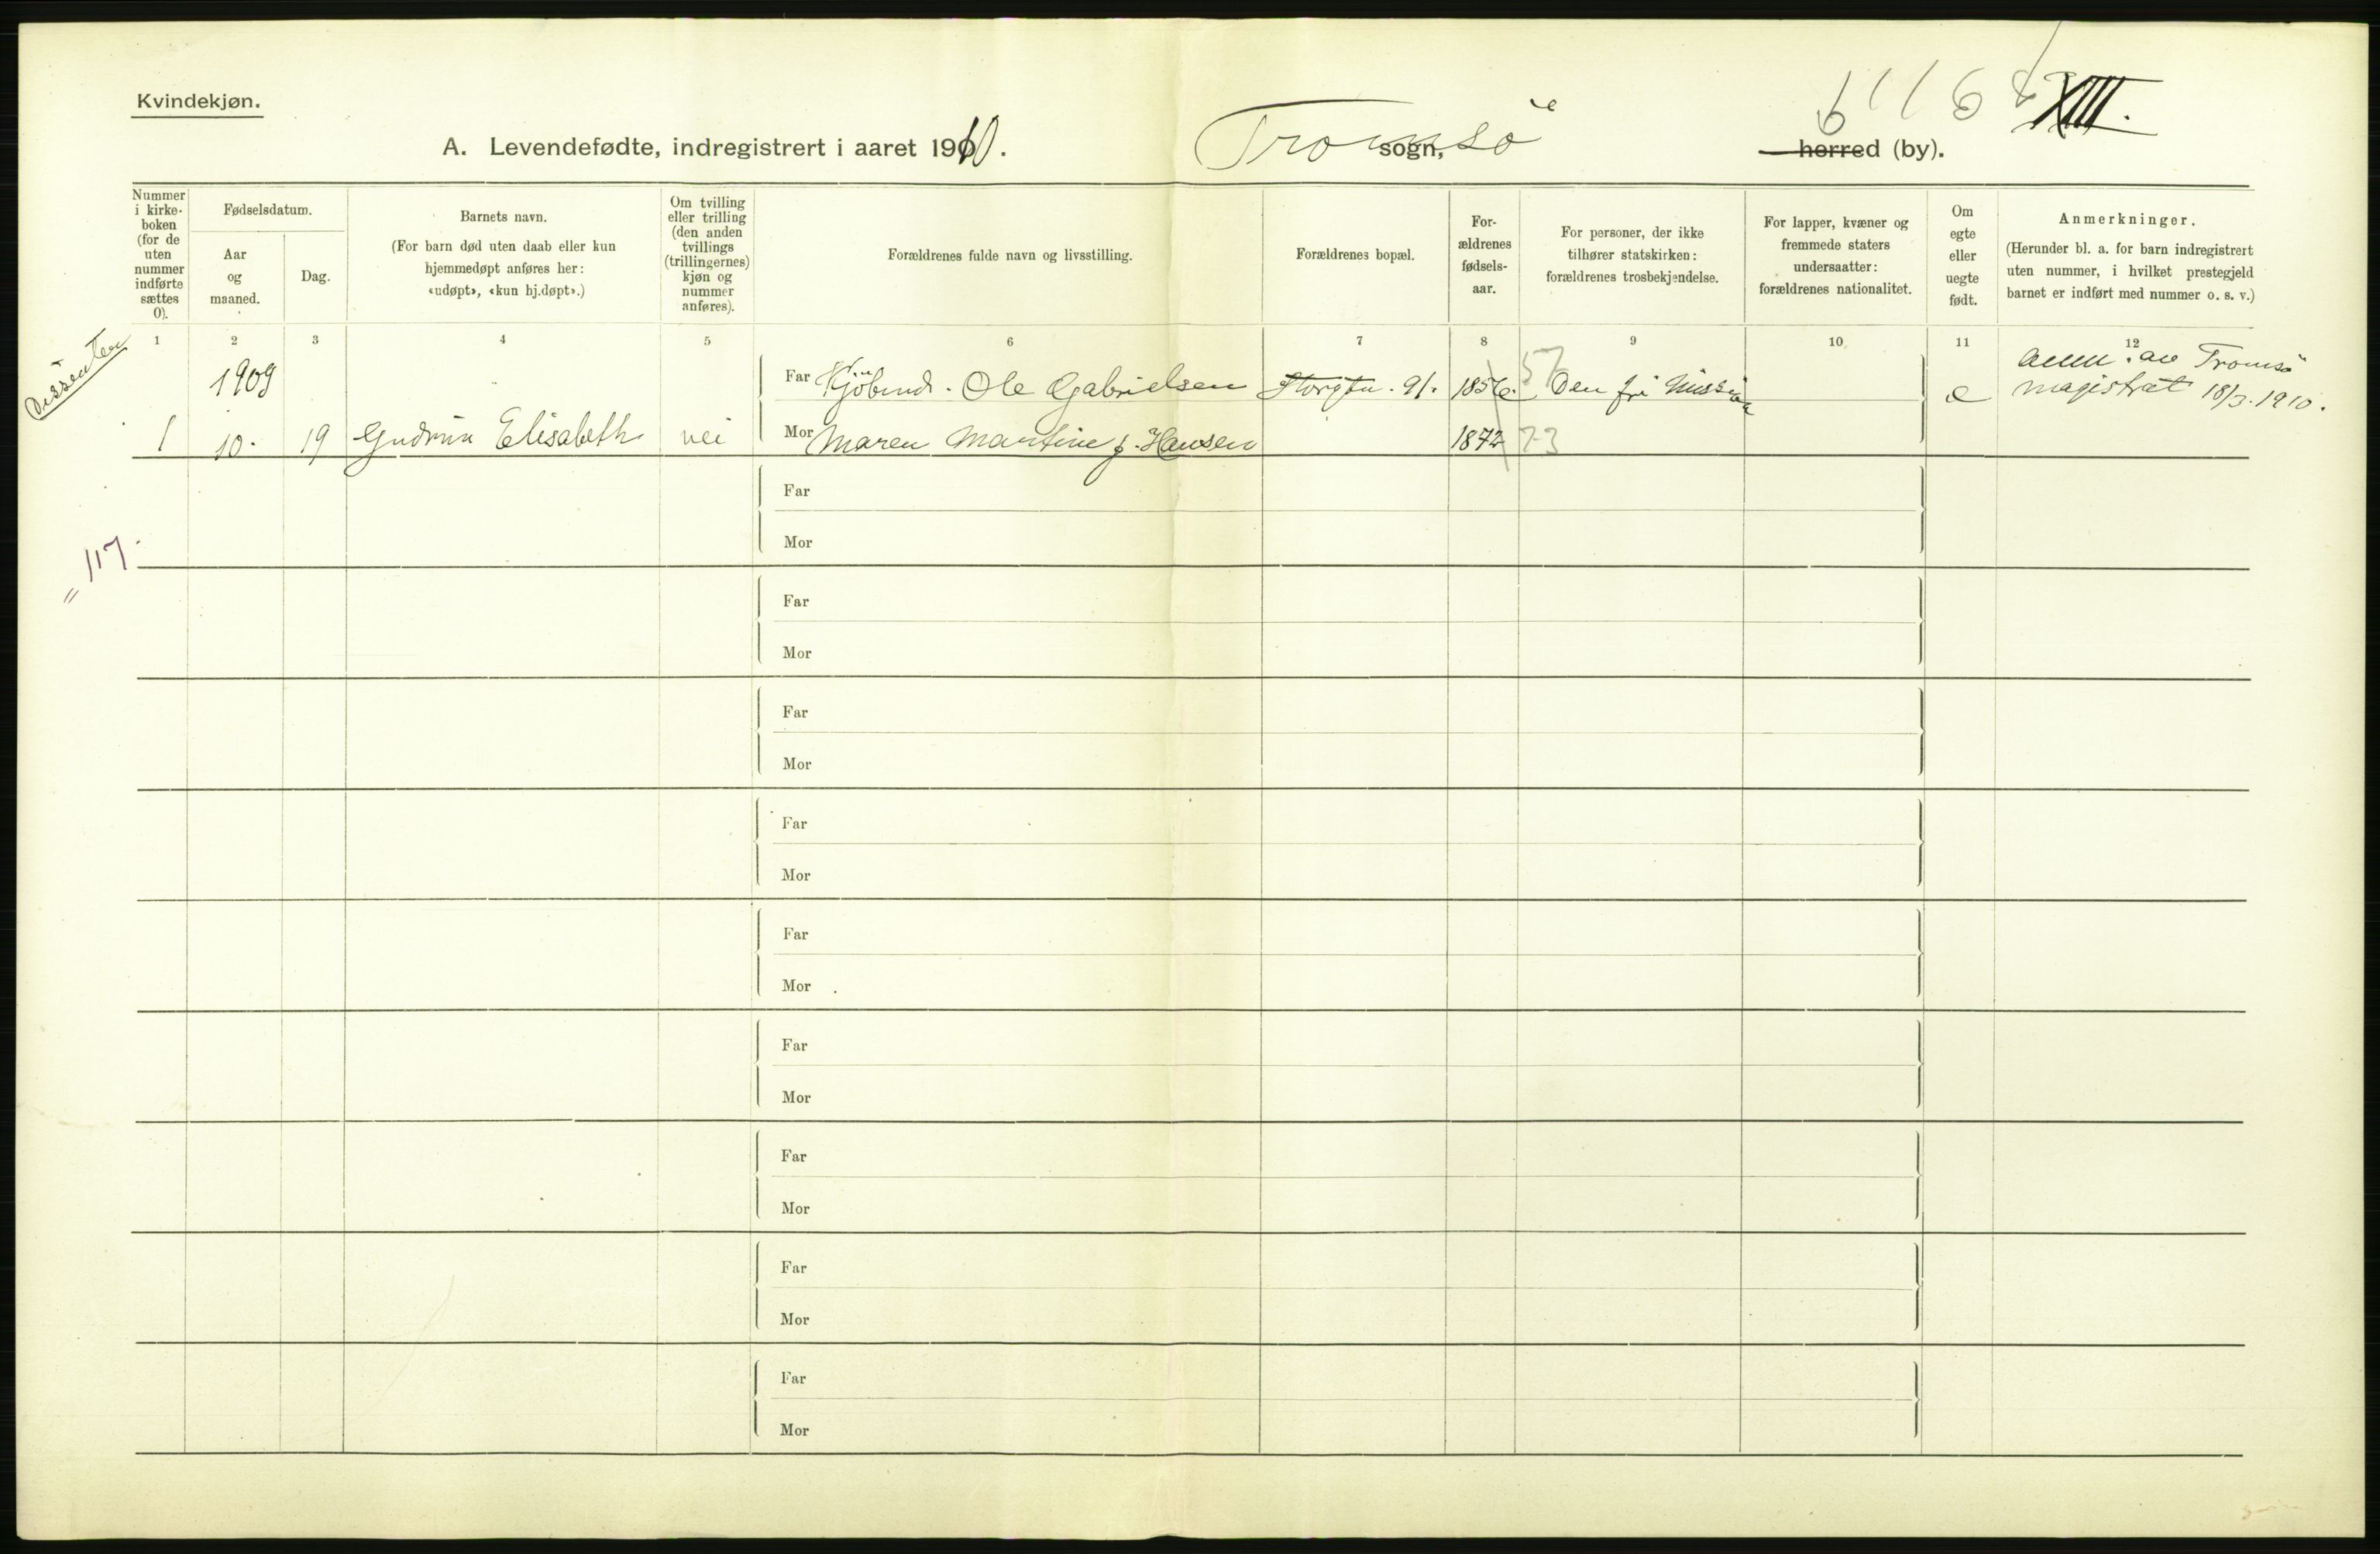 Kvindekjøn.
6 1 1 6 8 XIII.
A. Levendefødte, indregistrert i aaret 1910. Tromsö sogn, herred (by).
Nummer i kirke- boken (for de uten nummer indførte sættes 0).
Fødselsdatum.
Aar og maaned.
Dag.
Barnets navn.
(For barn død uten daab eller kun hjemmedøpt anføres her: «udøpt», «kun hj.døpt».)
Om tvilling eller trilling (den anden tvillings (trillingernes) kjøn og nummer anføres).
Forældrenes fulde navn og livsstilling.
Forældrenes bopæl.
For- ældrenes fødsels- aar.
For personer, der ikke tilhører statskirken: forældrenes trosbekjendelse.
For lapper, kvæner og fremmede staters undersaatter: forældrenes nationalitet.
Om egte eller uegte født.
Anmerkninger.
(Herunder bl. a. for barn indregistrert uten nummer, i hvilket prestegjeld barnet er indført med nummer o. s. v.)
1 2 3 4 5 6 7 8 9 10 11 12
Dissenter
1909 Far Kjöbmd. Ole Gabrielsen Storgtn. 91. 1856. 57 Den fri Mission e anm. av Tromsö
magistrat 18/3. 1910.
1 10. 19 Gudrun Elisabeth nei Mor Maren Martine f. Hansen 1872 73
Far
Mor
" 117.
Far
Mor
Far
Mor
Far
Mor
Far
Mor
Far
Mor
Far
Mor
Far
Mor
Far
Mor